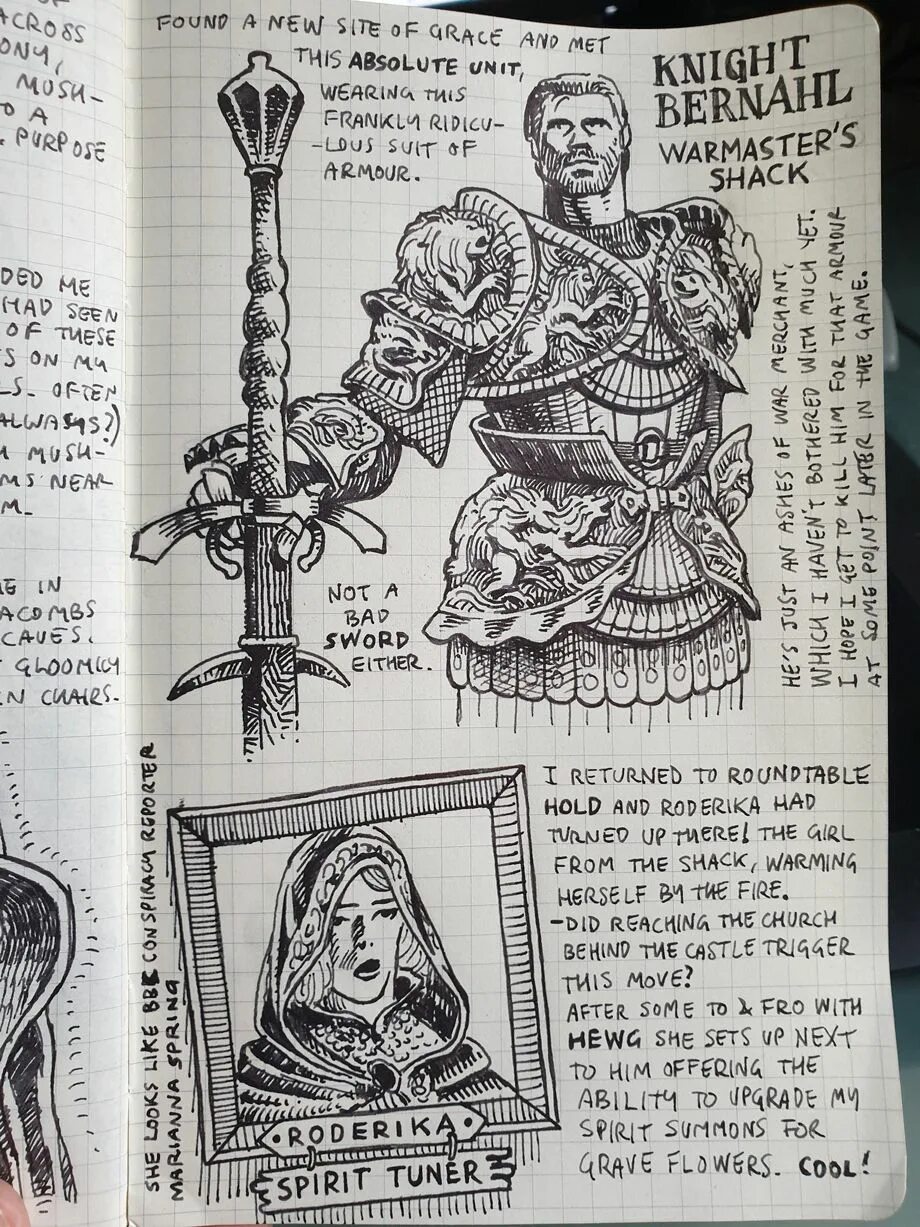 ACROSS
ONY,
MUSH-
TO A
. PURPOSE
DED ME
HAD SEEN
OF THESE
S ON MY
LS. OFTEN
ALWAYS?)
MUSH-
MS NEAR
M.
E IN
ACOMBS
CAVES.
GLOOMILY
N CHAIRS.
FOUND A NEW SITE OF GRACE AND MET
THIS ABSOLUTE UNIT,
WEARING THIS
FRANKLY RIDICU-
-LOUS SUIT OF
ARMOUR.
KNIGHT
BERNAHL
WARMASTER'S
SHACK
HE'S JUST AN ASHES OF WAR MERCHANT,
WHICH I HAVEN'T BOTHERED WITH MUCH YET.
I HOPE I GET TO KILL HIM FOR THAT ARMOUR
AT SOME POINT LATER IN THE GAME.
NOT A
BAD
SWORD
EITHER.
SHE LOOKS LIKE BBC CONSPIRACY REPORTER
MARIANNA SPRING
RODERIKA
SPIRIT TUNER
I RETURNED TO ROUNDTABLE
HOLD AND RODERIKA HAD
TURNED UP THERE! THE GIRL
FROM THE SHACK, WARMING
HERSELF BY THE FIRE.
-DID REACHING THE CHURCH
BEHIND THE CASTLE TRIGGER
THIS MOVE?
AFTER SOME TO & FRO WITH
HEWG SHE SETS UP NEXT
TO HIM OFFERING THE
ABILITY TO UPGRADE MY
SPIRIT SUMMONS FOR
GRAVE FLOWERS. COOL!